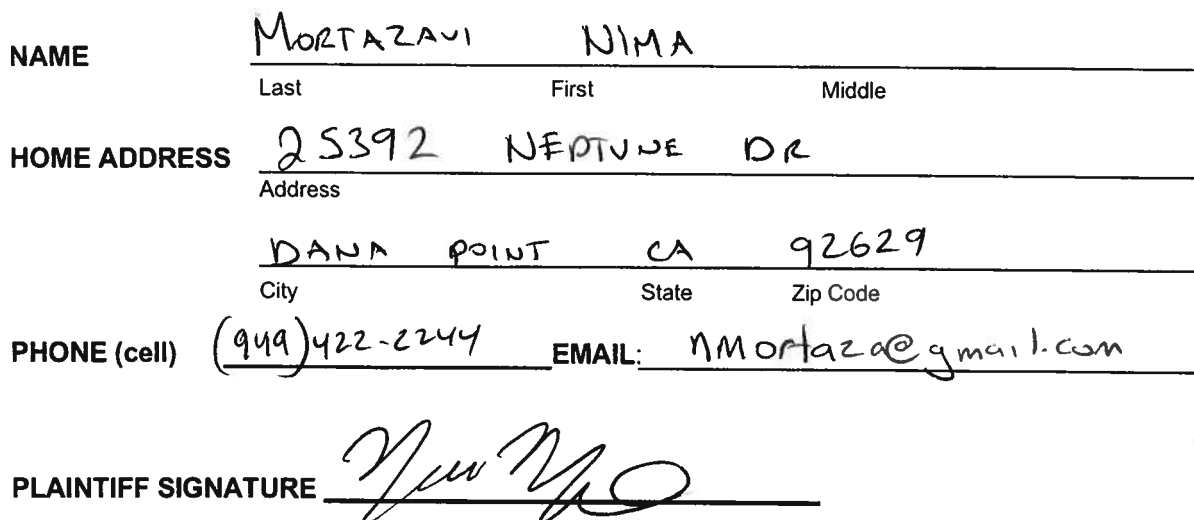 NAME MORTAZAVI NIMA
Last First Middle
HOME ADDRESS 25392 NEPTUNE DR
Address
DANA POINT CA 92629
City State Zip Code
PHONE (cell) (949)422-2244 EMAIL: nmortaza@gmail.com
PLAINTIFF SIGNATURE